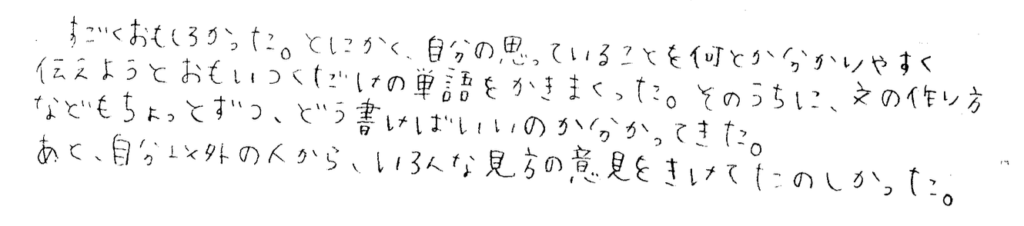 すごくおもしろかった。とにかく、自分の思っていることを何とか分かりやすく
伝えようとおもいつくだけの単語をかきまくった。そのうちに、文の作り方
などもちょっとずつ、どう書けばいいのか分かってきた。
あと、自分以外の人から、いろんな見方の意見をきけてたのしかった。